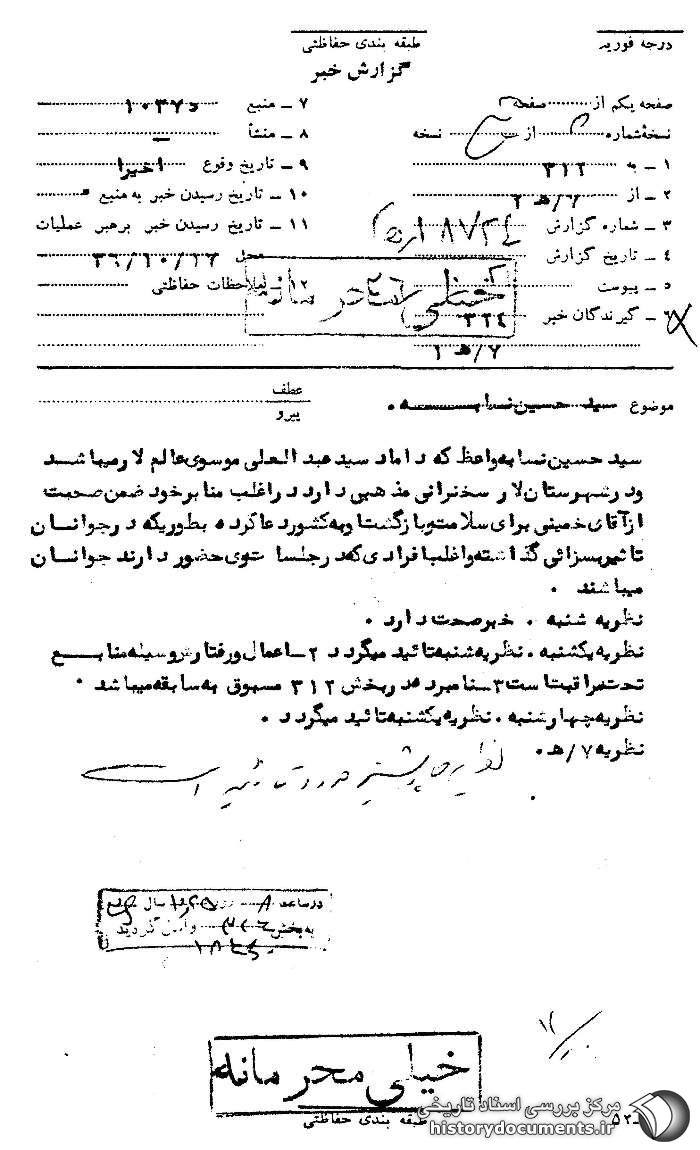 درجه فوریت
طبقه بندی حفاظتی
گزارش خبر
صفحه یکم از صفحه
نسخهٔ شماره از نسخه
۱ ـ به ۳۱۲
۲ ـ از ۷/هـ۲
۳ ـ شماره گزارش
۴ ـ تاریخ گزارش
۵ ـ پیوست
۶ ـ گیرندگان خبر ۳۲۴
۷/هـ ۱
۷ ـ منبع ۱۰۳۷۵
۸ ـ منشأ
۹ ـ تاریخ وقوع اخیرا
۱۰ ـ تاریخ رسیدن خبر به منبع
۱۱ ـ تاریخ رسیدن خبر برهبر عملیات
محل ۳۶/۱۰/۱۶
۱۲ ـ ملاحظات حفاظتی
عطف
پیرو
موضوع سید حسین نسابه .
سید حسین نسابه واعظ که داماد سید عبدالعلی موسوی عالم لار میباشد
ودر شهرستان لار سخنرانی مذهبی دارد در اغلب منابر خود ضمن صحبت
از آقای خمینی برای سلامت و بازگشت او به کشور دعا کرده بطوریکه در جوانان
تاثیر بسزائی گذاشته و اغلب افرادی که در جلسات وی حضور دارند جوانان
میباشند .
نظریه شنبه . خبر صحت دارد .
نظریه یکشنبه . نظریه شنبه تائید میگردد ۲ـ اعمال و رفتارش وسیله منابع
تحت مراقبت است ۳ـ نامبرده در بخش ۳۱۲ مسبوق به سابقه میباشد .
نظریه چهارشنبه . نظریه یکشنبه تائید میگردد .
نظریه ۷/هـ .
در ساعت ۸ روز سال
به بخش واصل گردید
خیلی محرمانه
طبقه بندی حفاظتی
مرکز بررسی اسناد تاریخی
historydocuments.ir